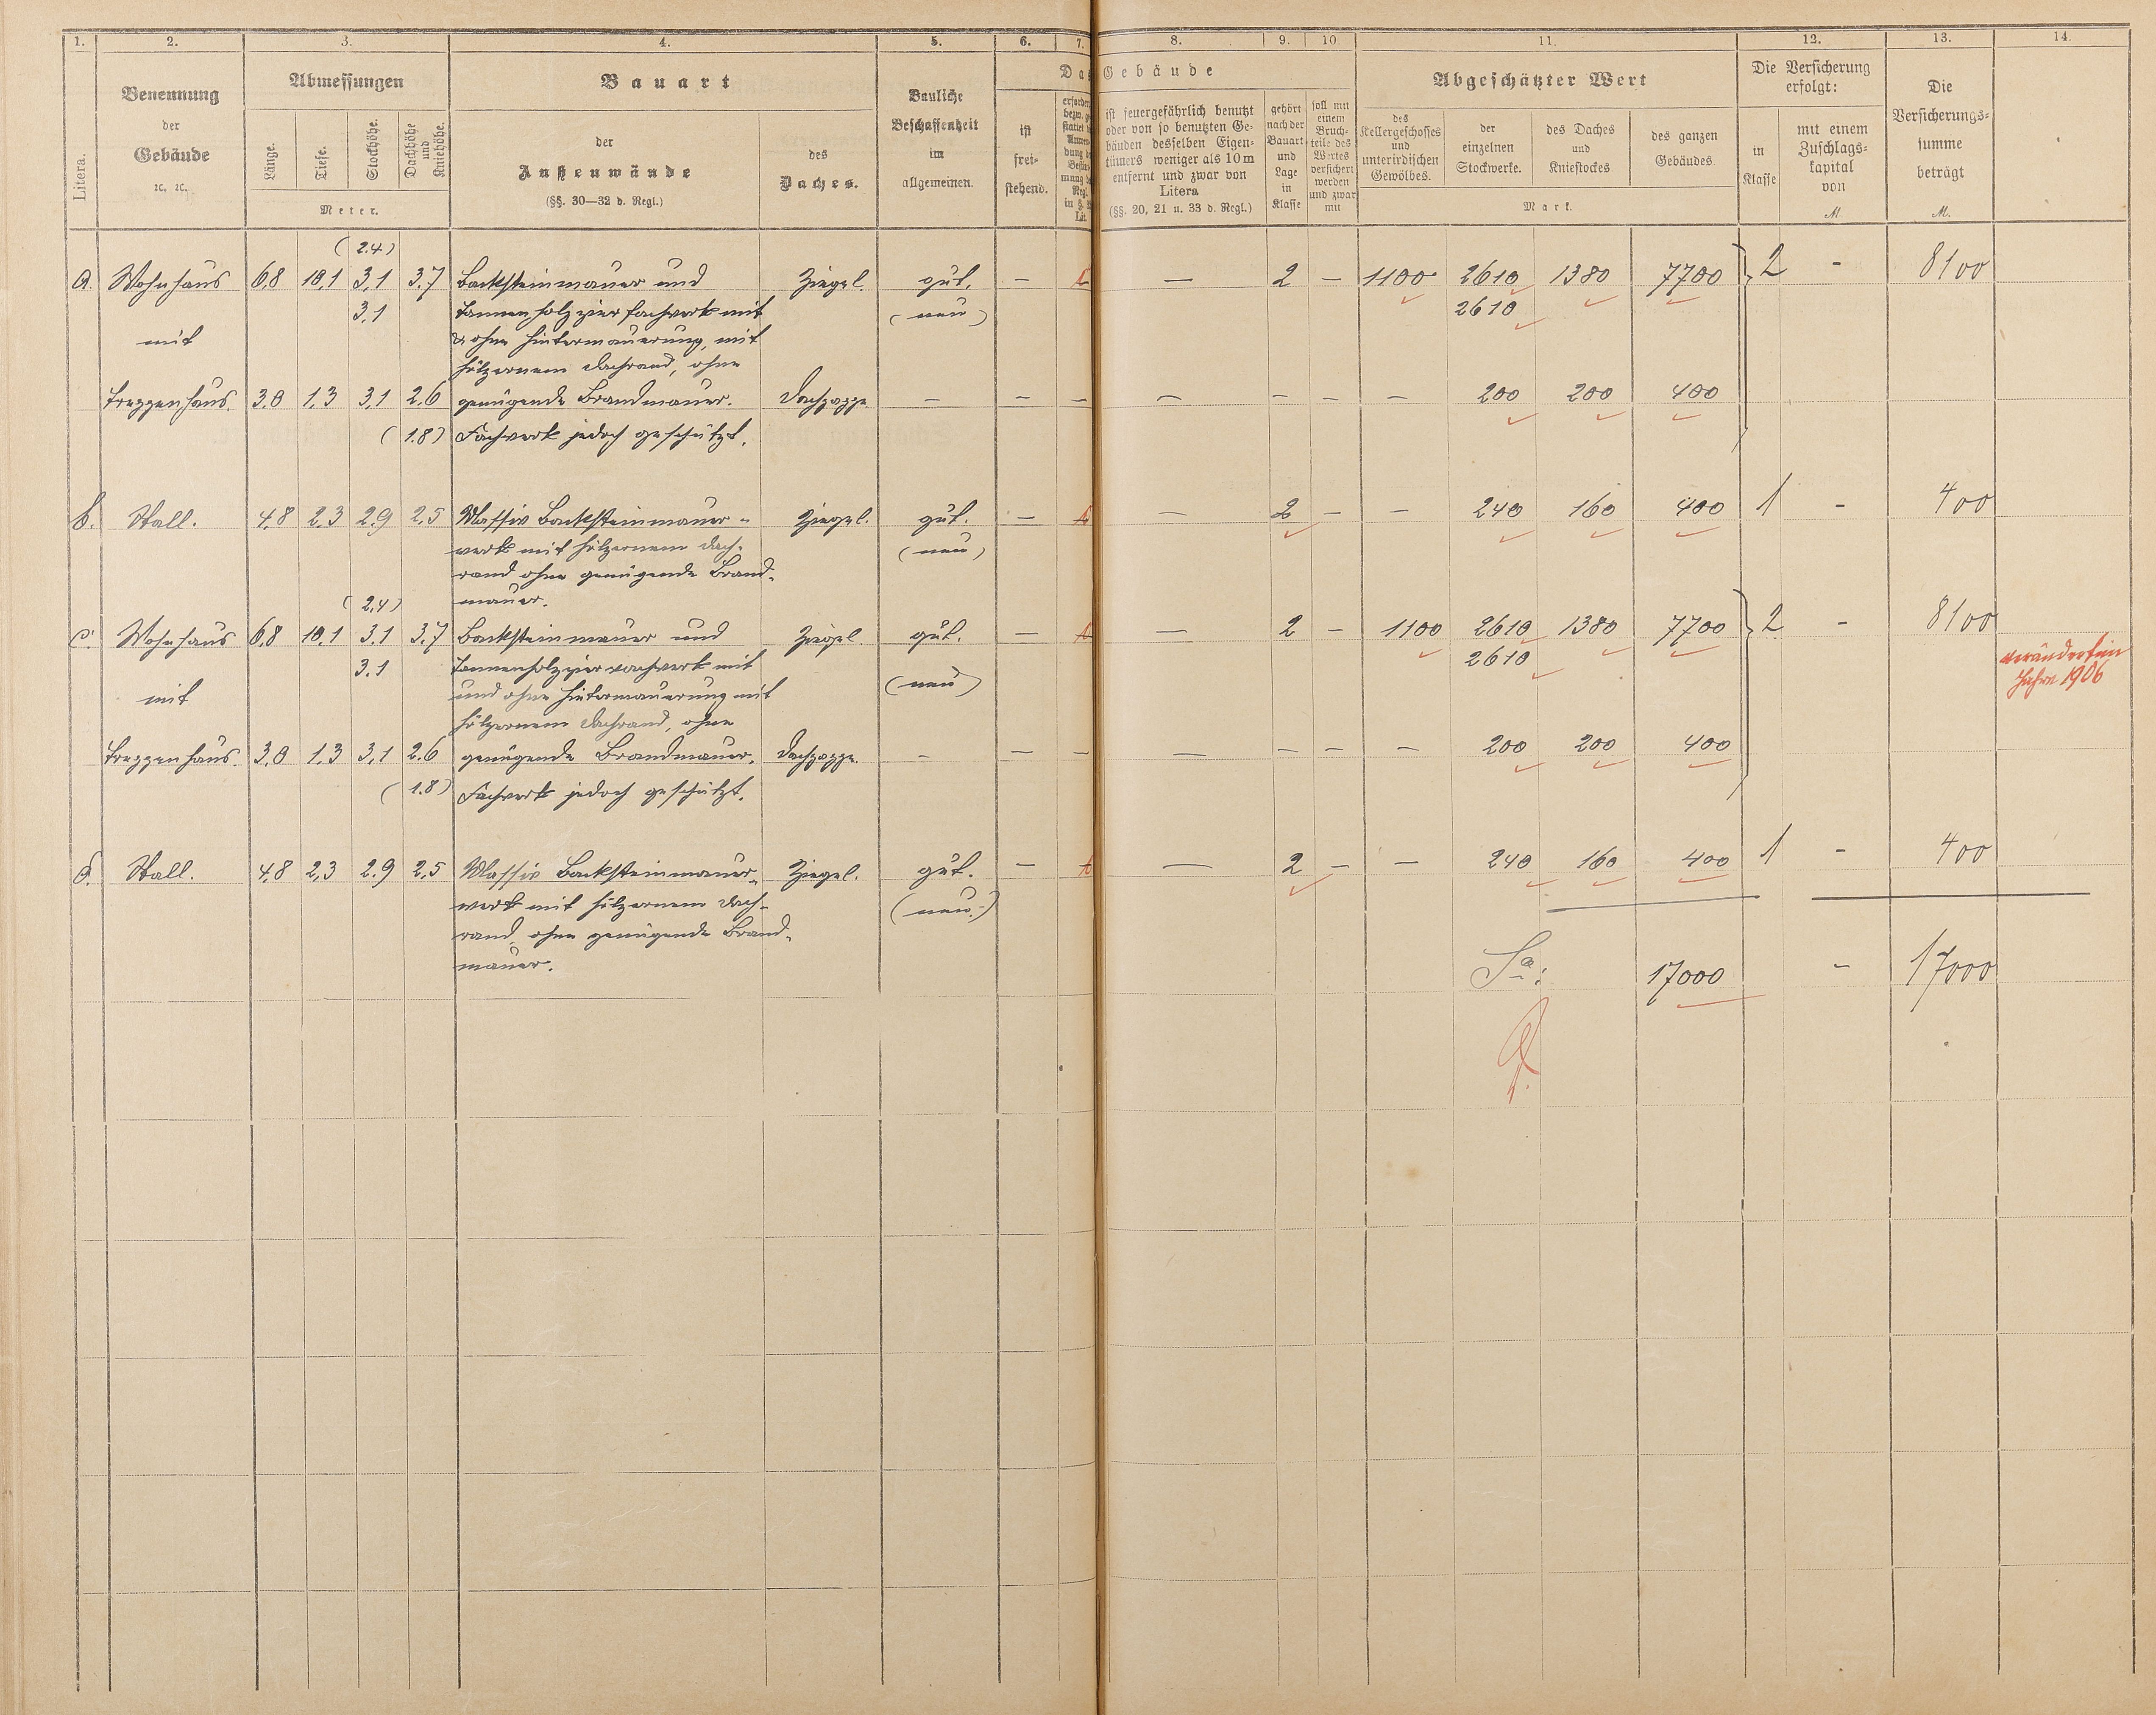 1. 2. 3. 4. 5. 6. 7. 8. 9. 10 11. 12. 13. 14.
Litera.
Benennung
der
Gebäude
ꝛc. ꝛc.
Abmessungen
Länge.
Tiefe.
Stockhöhe.
Dachhöhe
und
Kniehöhe.
Meter.
Bauart
der
Außenwände
(§§. 30—32 d. Regl.)
des
Daches.
Bauliche
Beschaffenheit
im
allgemeinen.
Das Gebäude
ist
frei-
stehend.
ist feuergefährlich benutzt
oder von so benutzten Ge-
bäuden desselben Eigen-
tümers weniger als 10 m
entfernt und zwar von
Litera
(§§. 20, 21 u. 33 d. Regl.)
gehört
nach der
Bauart
und
Lage
in
Klasse
soll mit
einem
Bruch-
teile des
Wertes
versichert
werden
und zwar
mit
Abgeschätzter Wert
des
Kellergeschosses
und
unterirdischen
Gewölbes.
der
einzelnen
Stockwerke.
des Daches
und
Kniestockes
des ganzen
Gebäudes.
Mark.
Die Versicherung
erfolgt:
in
Klasse
mit einem
Zuschlags-
kapital
von
M
Die
Versicherungs-
summe
beträgt
M.
(2.4)
a. Wohnhaus 6.8 10,1 3,1 3.7 Backsteinmauer und Ziegel. gut. — — 2 — 1100 2610 1380 7700 2 - 8100
3.1 Tannenholzzierfachwerk mit (neu) 2610
mit & ohne Hintermauerung, mit
hölzernem Dachrand, ohne
Treppenhaus. 3.0 1,3 3,1 2.6 genügende Brandmauer. Dachpappe — — — — — — — 200 200 400
(1.8) Fachwerk jedoch geschützt.
b. Stall. 4.8 2,3 2.9 2.5 Massiv Backsteinmauer- Ziegel. gut. — — 2 — — 240 160 400 1 - 400
werk mit hölzernem Dach- (neu)
rand ohne genügende Brand-
mauer.
(2.4)
c. Wohnhaus 6.8 10.1 3.1 3.7 Backsteinmauer und Ziegel. gut. — — 2 — 1100 2610 1380 7700 2 - 8100
3.1 Tannenholzzierfachwerk mit (neu) 2610
verändert im
Jahre 1906
mit und ohne Hintermauerung mit
hölzernem Dachrand, ohne
Treppenhaus. 3.0 1.3 3,1 2.6 genügende Brandmauer. Dachpappe. — — — — — — — 200 200 400
(1.8) Fachwerk jedoch geschützt.
d. Stall. 4.8 2,3 2.9 2,5 Massiv Backsteinmauer- Ziegel. gut. — — 2 — — 240 160 400 1 - 400
werk mit hölzernem Dach- (neu.)
rand, ohne genügende Brand-
mauer.
Sa: 17000 - 17000